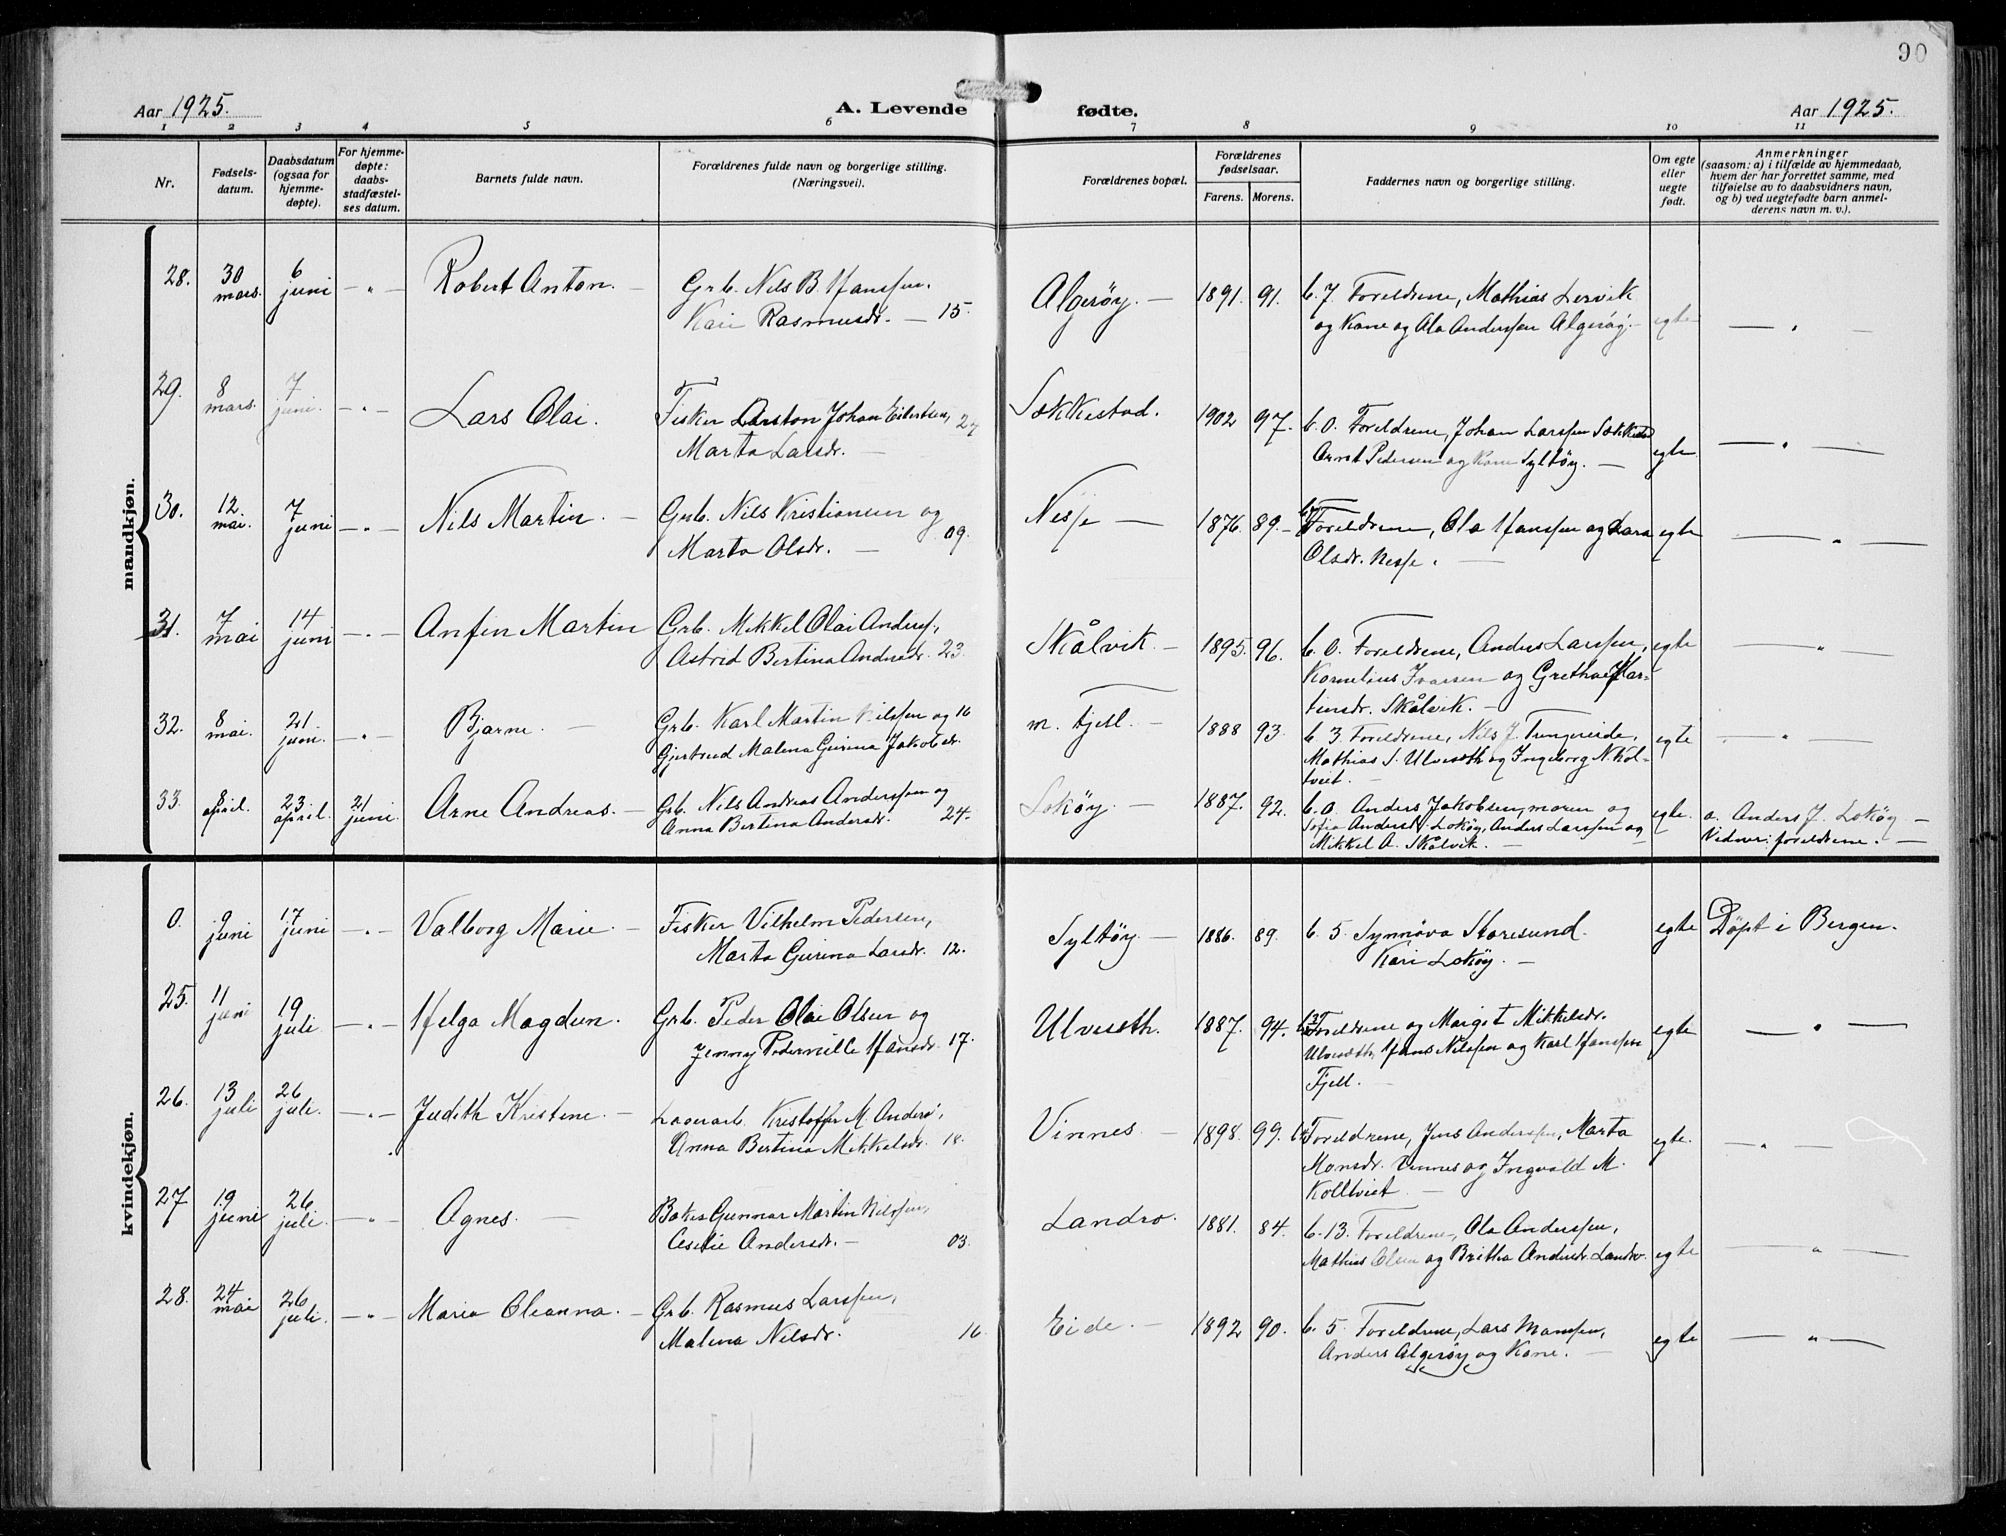 90
Aar 1925.
A. Levende fødte.
Aar 1925.
1 2 3 4 5 6 7 8 9 10 11
Nr.
Fødsels-
datum.
Daabsdatum
(ogsaa for
hjemme-
døpte).
For hjemme-
døpte:
daabs-
stadfæstel-
ses datum.
Barnets fulde navn.
Forældrenes fulde navn og borgerlige stilling.
(Næringsvei).
Forældrenes bopæl.
Forældrenes
fødselsaar.
Farens. Morens.
Faddernes navn og borgerlige stilling.
Om egte
eller
uegte
født.
Anmerkninger
(saasom: a) i tilfælde av hjemmedaab,
hvem der har forrettet samme, med
tilføielse av to daabsvidners navn,
og b) ved uegtefødte barn anmel-
derens navn m. v.).
mandkjøn.
28. 30 mars. 6 juni — „ — Robert Anton. — Grb. Nils B. Hanssen.
Kari Rasmusdr. — 15.
Algerøy. — 1891. 91. b. 7. Foreldrene, Mathias Lervik
og Kone og Ola Anderssen Algerøy. — egte — „ —
29. 8 mars. 7 juni. — „ — Lars Olai. Fisker Larston Johan Eilertsen, 24
Marta Larsdr. —
Sækkestad. 1902 97. b. 0. Foreldrene, Johan Larssen Sækkestad
Arnt Pedersen og Kone Syltøy. — egte — „ —
30. 12. mai. 7 juni — „ — Nils Martin. — Grb. Nils Kristiansen og
Marta Olsdr. — 09.
Nesse — 1876. 89. — Foreldrene, Ola Hanssen og Lara
Olsdr. Nesse. — egte — „ —
31. 7 mai 14 juni — „ — Anfin Martin Grb. Mikkel Olai Anderss.,
Astrid Bertina Andersdr. 23.
Skålvik. — 1895. 96. b. 0. Foreldrene, Anders Larssen,
Kornelius Ivarsen og Grethe Mar-
tinsdr. Skålvik. — egte — „ —
32. 8 mai. 21. juni. — „ — Bjarne. — Grb. Karl Martin Nilssen og 16
Gjertrud Malena Gurina Jakobsdr.
m. Fjell. — 1888 93. b. 3. Foreldrene, Nils J. Tungeseide,
Mathias S. Ulveseth og Ingeborg N. Kol-
tveit. — egte — „ —
33. 8 april. 23 april. 21 juni. Arne Andreas. — Grb. Nils Andreas Anderssen og
Anna Bertina Andersdr. 24.
Lokøy. — 1887. 92. b. 0. Anders Jakobsen, moren og
Sofia Andersdr. Lokøy, Anders Larssen og
Mikkel A. Skålvik. — egte. a. Anders J. Lokøy. —
Vidner: foreldrene. —
kvindekjøn.
0. 9 juni 17 juni — „ — Valborg Marie. — Fisker Vilhelm Pedersen,
Marta Gurina Larsdr. 12.
Syltøy — 1886. 89. b. 5. Synnøva Storesund.
Kari Lokøy. — egte Døpt i Bergen.
25. 11 juni 19 juli — „ — Helga Magdun. Grb. Peder Olai Olsen og
Jenny Pedernille Hansdr. 17.
Ulveseth. 1887. 94. Foreldrene og Margit Mikkelsdr.
Ulveseth, Hans Nilssen og Karl Hanssen
Fjell. — egte — „ —
26. 13 juli 26 juli. — „ — Judith Kristine. — Lagerarb. Kristoffer M. Anders.,
Anna Bertina Mikkelsdr. 18.
Vinnes. — 1898. 99. Foreldrene, Jens Anderssen, Marta
Monsdr. Vinnes og Ingvald M.
Kolltveit. — egte. — „ —
27 19. juni 26 juli. — „ — Agnes. — Baker Gunnar Martin Nilssen,
Cecilie Andersdr. — 03.
Landro. 1881. 84. b. 13. Foreldrene, Ola Anderssen,
Mathias Olsen og Britha Andersdr. Landro. egte — „ —
28. 24 mai 26 juli. — „ — Maria Oleanna. — Grb. Rasmus Larssen,
Malena Nilsdr. 16.
Eide. — 1892 90. b. 5. Foreldrene, Lars Monssen,
Anders Algerøy og Kone. — egte — „ —